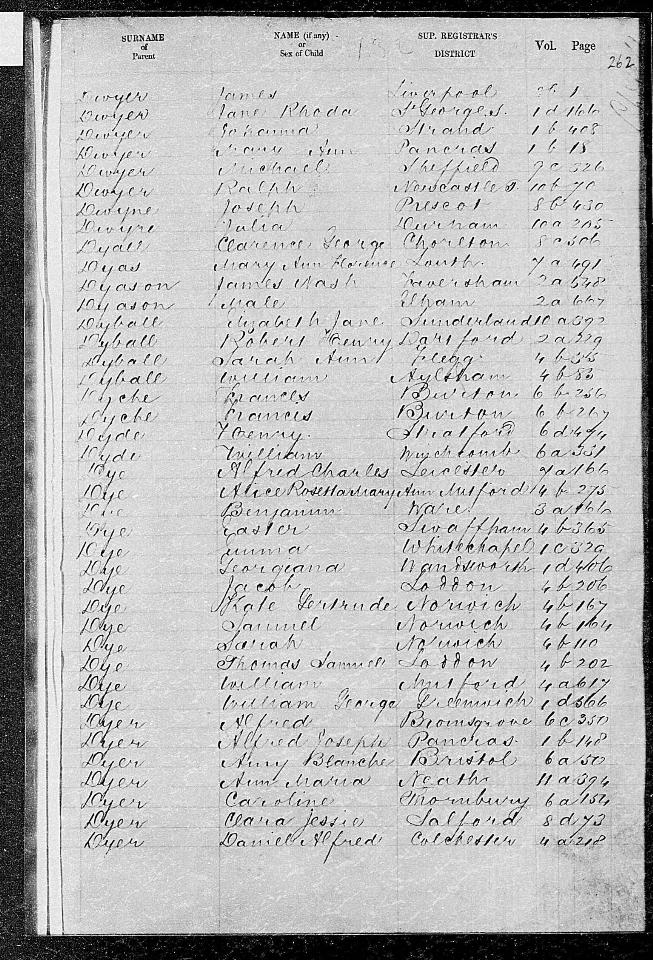 SURNAME of Parent NAME (if any) or Sex of Child SUP. REGISTRAR'S DISTRICT Vol. Page
262
Dwyer James Liverpool 8b 1
Dwyer Jane Rhoda St George S. 1d 166
Dwyer Johanna Strand 1b 408
Dwyer Mary Ann Pancras 1b 18
Dwyer Michael Sheffield 9c 326
Dwyer Ralph Newcastle T. 10b 70
Dwyne Joseph Prescot 8b 430
Dwyre Julia Durham 10a 205
Dyall Clarence George Chorlton 8c 506
Dyas Mary Ann Florence Louth 7a 491
Dyason James Nash Faversham 2a 548
Dyason Male Elham 2a 667
Dyball Elizabeth Jane Sunderland 10a 392
Dyball Robert Henry Dartford 2a 229
Dyball Sarah Ann Flegg 4b 35
Dyball William Aylsham 4b 83
Dyche Frances Burton 6b 256
Dyche Francis Burton 6b 267
Dyde Henry Stratford 6d 494
Dyde William Winchcomb 6a 351
Dye Alfred Charles Leicester 7a 166
Dye Alice Rosettamary Ann Mutford 4b 273
Dye Benjamin Ware 3a 166
Dye Easter Swaffham 4b 365
Dye Emma Whitechapel 1c 329
Dye Georgiana Wandsworth 1d 406
Dye Jacob Loddon 4b 206
Dye Kate Gertrude Norwich 4b 167
Dye Samuel Norwich 4b 164
Dye Sarah Norwich 4b 110
Dye Thomas Samuel Loddon 4b 202
Dye William Mutford 4a 617
Dye William George Greenwich 1d 566
Dyer Alfred Bromsgrove 6c 350
Dyer Alfred Joseph Pancras 1b 148
Dyer Amy Blanche Bristol 6a 50
Dyer Ann Maria Neath 11a 394
Dyer Caroline Thornbury 6a 154
Dyer Clara Jessie Salford 8d 73
Dyer Daniel Alfred Colchester 4a 218